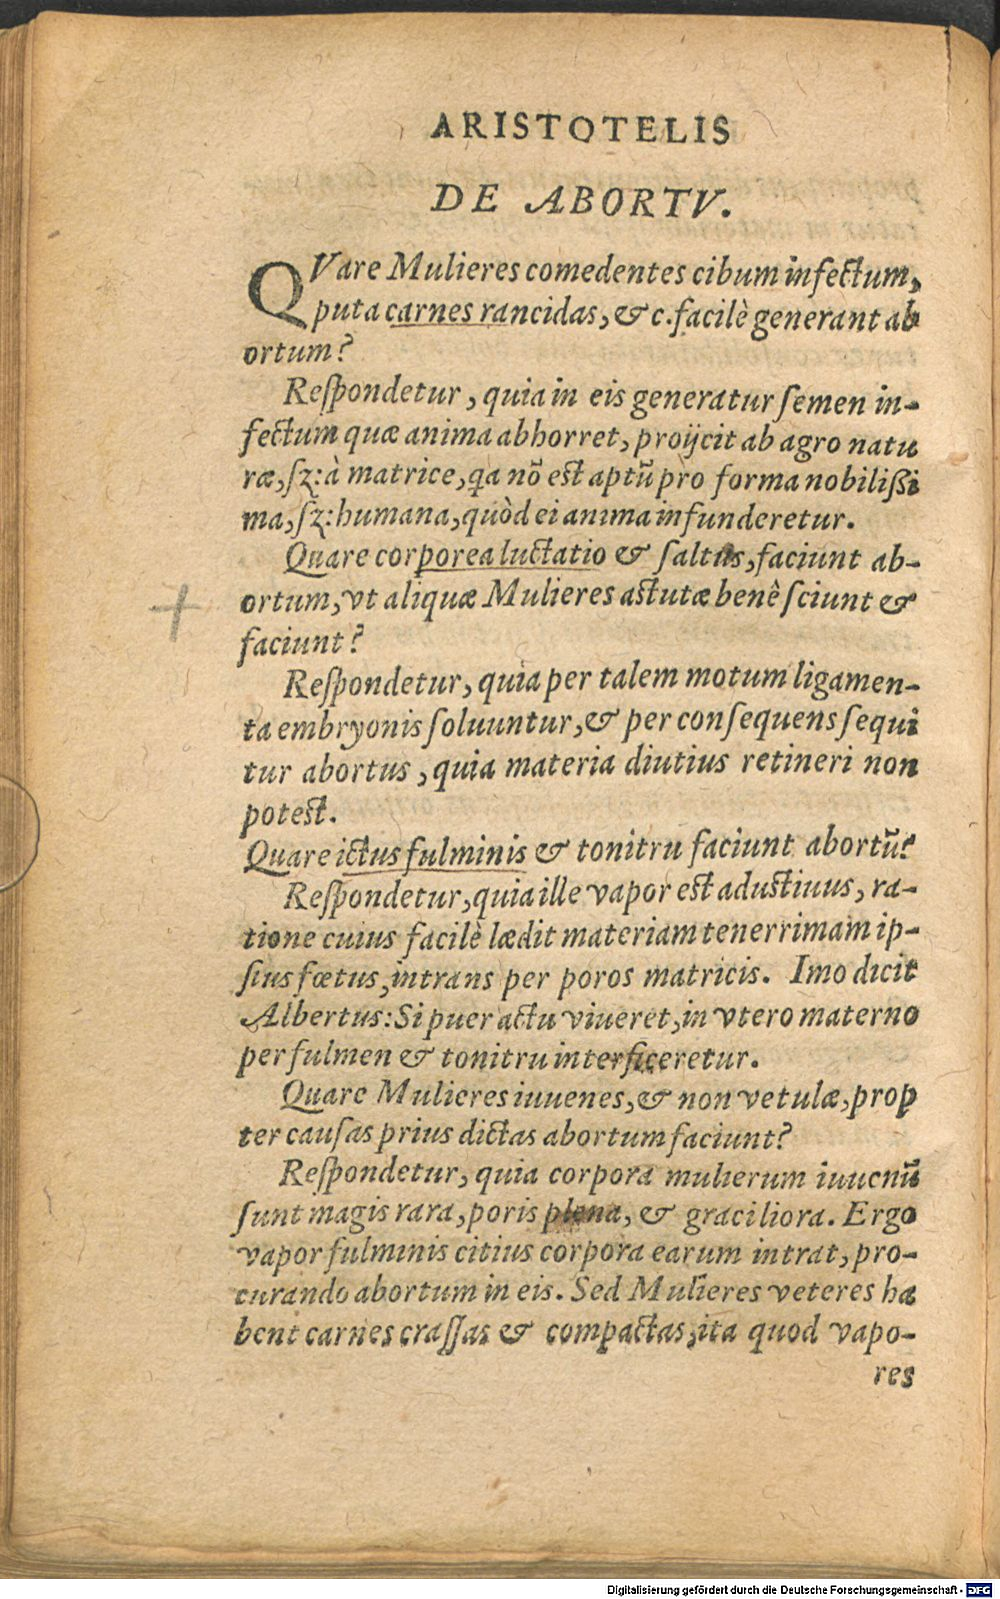 ARISTOTELIS
DE ABORTV.
QVare Mulieres comedentes cibum infectum,
puta carnes rancidas, & c. facilè generant ab
ortum?
Reſpondetur, quia in eis generatur ſemen in-
fectum quæ anima abhorret, proijcit ab agro natu
ræ, ſz: à matrice, qa nō est aptū pro forma nobiliſsi
ma, ſz: humana, quòd ei anima infunderetur.
Quare corporea luctatio & ſaltus, faciunt ab-
ortum, vt aliquæ Mulieres astutæ benê ſciunt &
faciunt?
Reſpondetur, quia per talem motum ligamen-
ta embryonis ſoluuntur, & per conſequens ſequi
tur abortus, quia materia diutius retineri non
potest.
Quare ictus fulminis & tonitru faciunt abortū?
Reſpondetur, quia ille vapor est adustiuus, ra-
tione cuius facilè lædit materiam tenerrimam ip-
ſius fœtus, intrans per poros matricis. Imo dicit
Albertus: Si puer actu viueret, in vtero materno
per fulmen & tonitru interficeretur.
Quare Mulieres iuuenes, & non vetulæ, prop
ter cauſas prius dictas abortum faciunt?
Reſpondetur, quia corpora mulierum iuuenū
ſunt magis rara, poris plena, & graciliora. Ergo
vapor fulminis citius corpora earum intrat, pro-
curando abortum in eis. Sed Mulieres veteres ha
bent carnes craſſas & compactas, ita quod vapo-
res
Digitalisierung gefördert durch die Deutsche Forschungsgemeinschaft - DFG